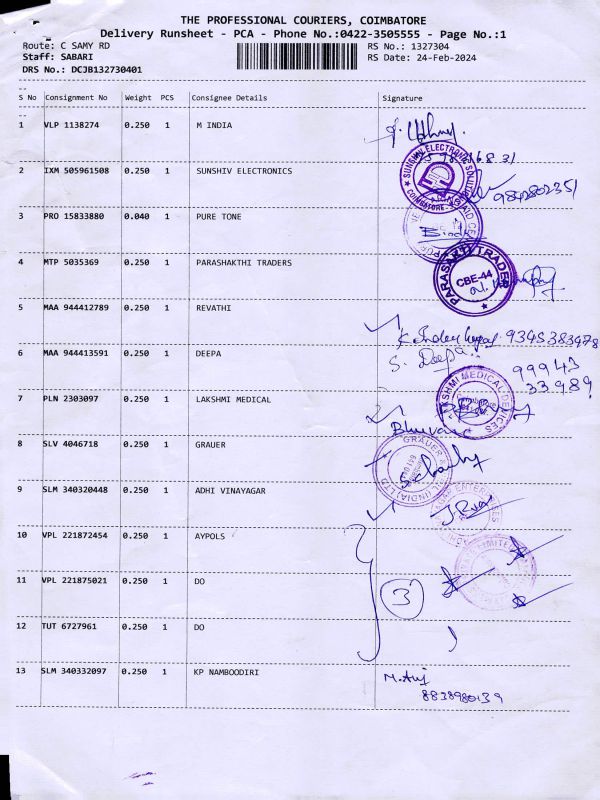 THE PROFESSIONAL COURIERS, COIMBATORE
Delivery Runsheet - PCA - Phone No.:0422-3505555 - Page No.:1
Route: C SAMY RD RS No.: 1327304
Staff: SABARI RS Date: 24-Feb-2024
DRS No.: DCJB132730401
S No Consignment No Weight PCS Consignee Details Signature
1 VLP 1138274 0.250 1 M INDIA
2 IXM 505961508 0.250 1 SUNSHIV ELECTRONICS
SUNSHIV ELECTRONIC SOLUTIONS
COIMBATORE
9842802351
3 PRO 15833880 0.040 1 PURE TONE
4 MTP 5035369 0.250 1 PARASHAKTHI TRADERS
PARASAKTHI TRADERS
CBE-44
5 MAA 944412789 0.250 1 REVATHI
9345383478
6 MAA 944413591 0.250 1 DEEPA
S. Deepa
99943
33989
7 PLN 2303097 1 0.250 LAKSHMI MEDICAL
LAKSHMI MEDICAL DEVICES
8 SLV 4046718 0.250 1 GRAUER
GRAUER & (INDIA) LTD
9 SLM 340320448 0.250 1 ADHI VINAYAGAR
ENTERPRISES
10 VPL 221872454 0.250 1 AYPOLS
LIMITED
11 VPL 221875021 0.250 1 DO
3
12 TUT 6727961 0.250 1 DO
13 SLM 340332097 0.250 1 KP NAMBOODIRI
8838980139